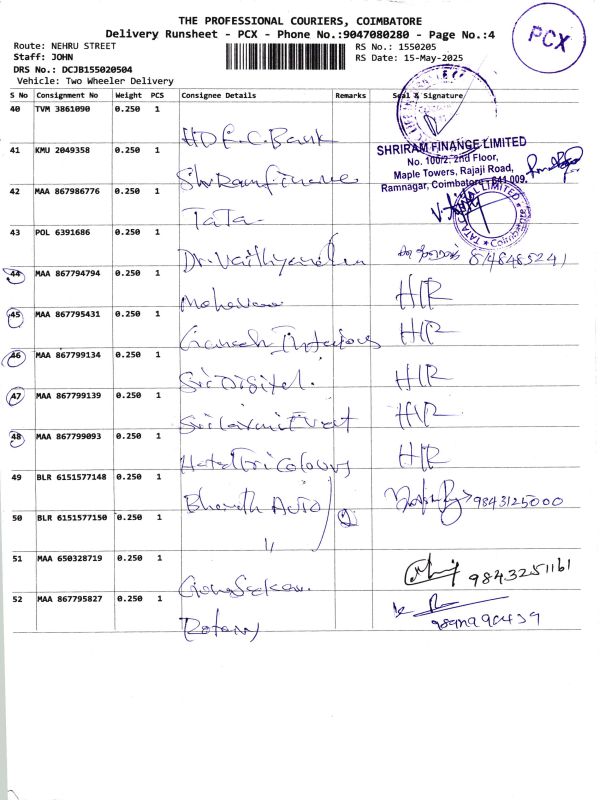 THE PROFESSIONAL COURIERS, COIMBATORE
Delivery Runsheet - PCX - Phone No.:9047080280 - Page No.:4
PCX
Route: NEHRU STREET
RS No.: 1550205
Staff: JOHN
RS Date: 15-May-2025
DRS No.: DCJB155020504
Vehicle: Two Wheeler Delivery
S No Consignment No Weight PCS Consignee Details Remarks Seal & Signature
40 TVM 3861090 0.250 1
HDFC Bank
41 KMU 2049358 0.250 1
Shriram Finance
SHRIRAM FINANCE LIMITED
No. 100/2, 2nd Floor,
Maple Towers, Rajaji Road,
Ramnagar, Coimbatore - 641 009.
42 MAA 867986776 0.250 1
Tata
43 POL 6391686 0.250 1
Dr. 8148485241
44 MAA 867794794 0.250 1
HR
45 MAA 867795431 0.250 1
Ganesh HR
46 MAA 867799134 0.250 1
Sri Digitel. HR
47 MAA 867799139 0.250 1
Sri HR
48 MAA 867799093 0.250 1
Hotel Tri Colours HR
49 BLR 6151577148 0.250 1
Bharath Auto 9843125000
50 BLR 6151577150 0.250 1 2
"
51 MAA 650328719 0.250 1
9843251161
52 MAA 867795827 0.250 1
Rotary